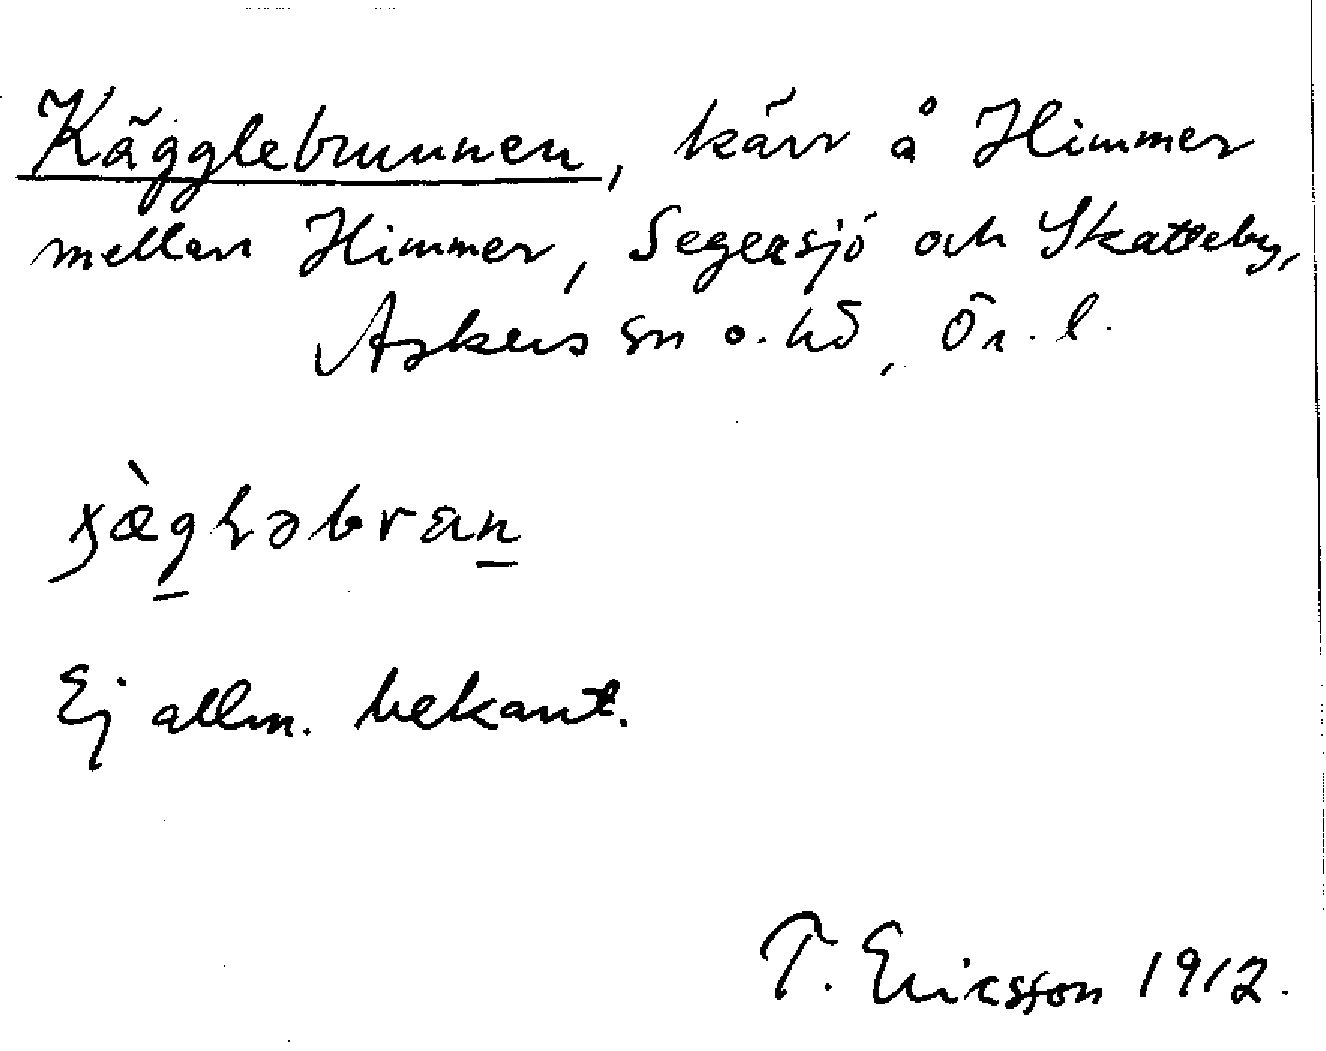 Kägglebrunnen, kärr å Himmer
mellan Himmer, Segersjö och Skatteby,
Askers sn o. hd, Ör. l.
Ej allm. bekant.
T. Ericsson 1912.